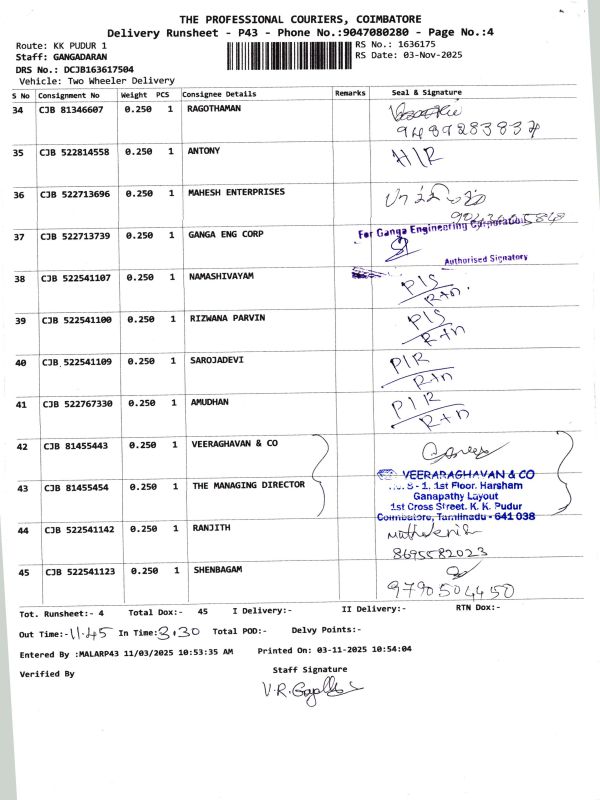 THE PROFESSIONAL COURIERS, COIMBATORE
Delivery Runsheet - P43 - Phone No.:9047080280 - Page No.:4
Route: KK PUDUR 1 RS No.: 1636175
Staff: GANGADARAN RS Date: 03-Nov-2025
DRS No.: DCJB163617504
Vehicle: Two Wheeler Delivery
S No Consignment No Weight PCS Consignee Details Remarks Seal & Signature
34 CJB 81346607 0.250 1 RAGOTHAMAN
9489283837
35 CJB 522814558 0.250 1 ANTONY H/R
36 CJB 522713696 0.250 1 MAHESH ENTERPRISES
37 CJB 522713739 0.250 1 GANGA ENG CORP For Ganga Engineering Corporation
Authorised Signatory
38 CJB 522541107 0.250 1 NAMASHIVAYAM P/S
R+n.
39 CJB 522541100 0.250 1 RIZWANA PARVIN P/S
R+n
40 CJB 522541109 0.250 1 SAROJADEVI P/R
R+n
41 CJB 522767330 0.250 1 AMUDHAN P/R
R+n
42 CJB 81455443 0.250 1 VEERAGHAVAN & CO
VEERARAGHAVAN & CO
43 CJB 81455454 0.250 1 THE MANAGING DIRECTOR S - 1, 1st Floor, Harsham
Ganapathy Layout
1st Cross Street, K. K. Pudur
Coimbatore, Tamilnadu - 641 038
44 CJB 522541142 0.250 1 RANJITH
8695582023
45 CJB 522541123 0.250 1 SHENBAGAM
9790504450
Tot. Runsheet:- 4 Total Dox:- 45 I Delivery:- II Delivery:- RTN Dox:-
Out Time:-11.45 In Time:3.30 Total POD:- Delvy Points:-
Entered By :MALARP43 11/03/2025 10:53:35 AM Printed On: 03-11-2025 10:54:04
Verified By Staff Signature